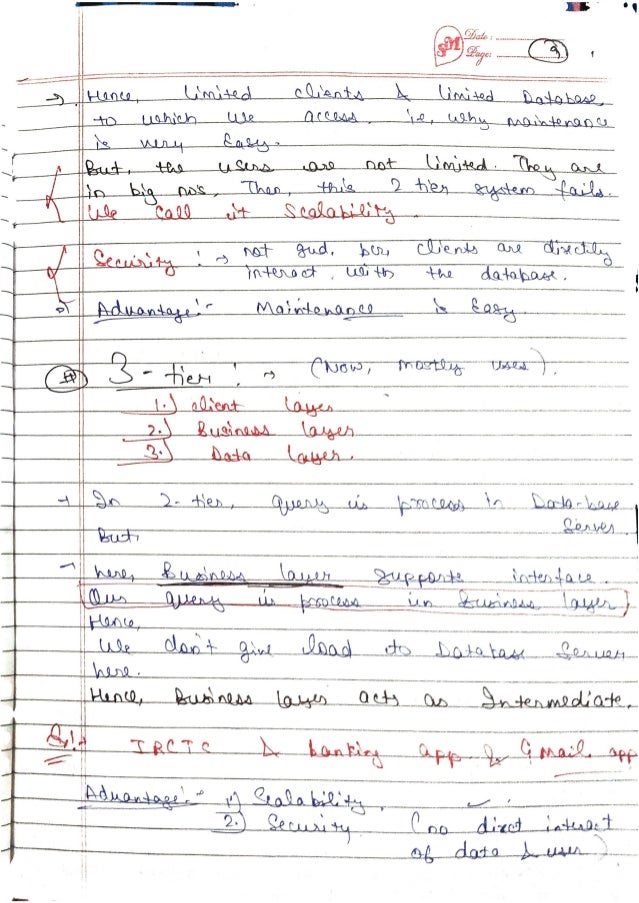 SM Date : ............
Page : ............ 3
→ Hence, limited clients & limited Database,
to which we access. i.e, why maintenance
is very Easy.
But, the users are not limited. They are
in big nos, Then, this 2 tier system fails.
We Call it Scalability.
Security : → not gud, bcz clients are directly
interact with the database.
Advantage :- Maintenance is Easy.
# 3-tier : → (Now, mostly uses).
1.) client layer
2.) Business layer
3.) Data layer.
→ In 2-tier, query is process in Data-base
Server.
But,
→ here, Business layer supports interface.
(Our query is process in Business layer)
Hence,
We don't give load to Database Server
here.
Hence, Business layer acts as Intermediate.
IRCTC & banking app & Gmail app
Advantage :- 1) Scalability.
2.) Security (no direct interact
of data & user)